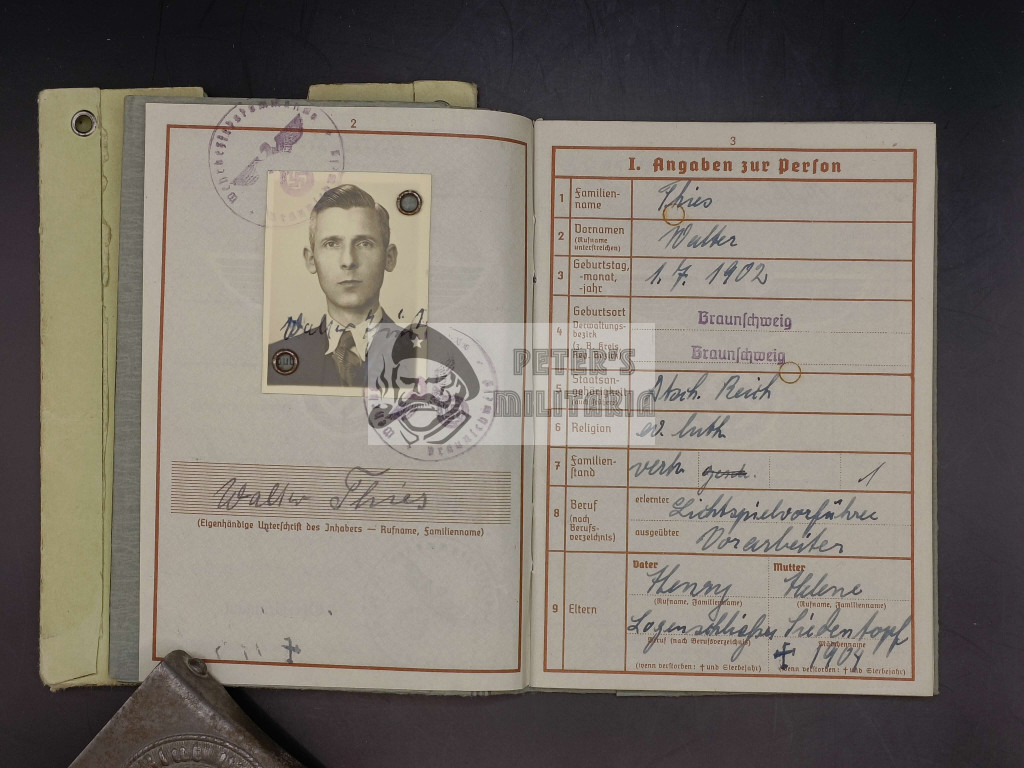 2
Wehrbezirkskommando
Walter Thies
Walter Thies
(Eigenhändige Unterschrift des Inhabers — Rufname, Familienname)
3
I. Angaben zur Person
1 Familien-
name
Thies
2 Vornamen
(Rufname
unterstreichen)
Walter
3 Geburtstag,
-monat,
-jahr
1. 7. 1902
4 Geburtsort
Verwaltungs-
bezirk
(z. B. Kreis,
Reg. Bezirk)
Braunschweig
Braunschweig
5 Staatsan-
gehörigkeit
Dtsch. Reich
6 Religion
ev. luth.
7 Familien-
stand
verh. gesch. 1
8 Beruf
(nach
Berufs-
verzeichnis)
erlernter Lichtspielvorführer
ausgeübter Vorarbeiter
9 Eltern
Vater Mutter
Henry Helene
(Rufname, Familienname) (Rufname, Familienname)
Logenschließer Siedentopf
Beruf (nach Berufsverzeichnis) Mädchenname
† 1904
(wenn verstorben: † und Sterbejahr) (wenn verstorben: † und Sterbejahr)
PETER'S
MILITARIA